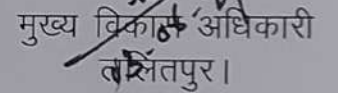 मुख्य विकास अधिकारी
ललितपुर।